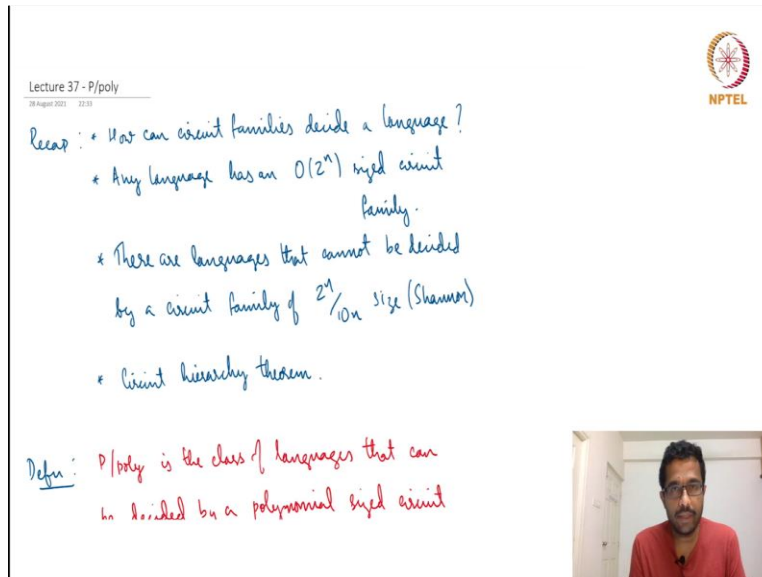 Lecture 37 - P/poly
28 August 2021 22:33
NPTEL
Recap : * How can circuit families decide a language?
* Any language has an O(2ⁿ) sized circuit
family.
* There are languages that cannot be decided
by a circuit family of 2ⁿ/10n size (Shannon)
* Circuit hierarchy theorem.
Defn : P/poly is the class of languages that can
be decided by a polynomial sized circuit